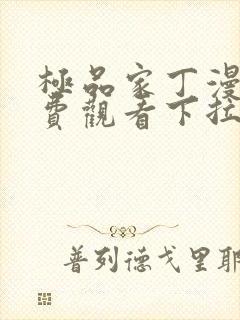 極品家丁漫
費觀看下拉
普列德戈里耶